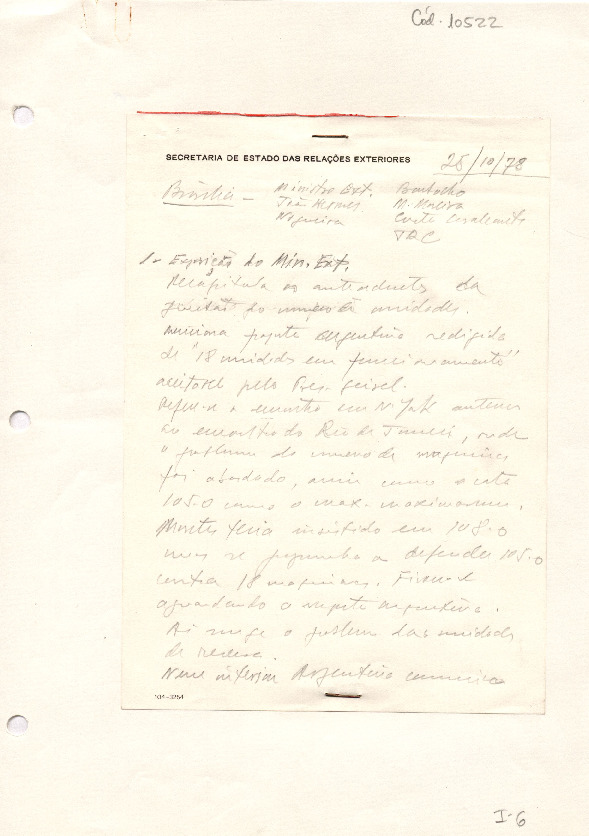 Cód. 10522
SECRETARIA DE ESTADO DAS RELAÇÕES EXTERIORES
25/10/78
Brasília – Ministro Ext.
João Hermes
Nogueira
Bambocho
M. Moreira
Costa Cavalcanti
1- Exposição do Min. Ext.
Recapitula os antecedentes da
questão do número de unidades.
Menciona proposta Argentina redigida
de "18 unidades em funcionamento"
aceitável pelo Pres. Geisel.
Refere-se a encontro em N. York anterior
ao encontro do Rio de Janeiro, onde
o problema do número de máquinas
foi abordado, assim como a cota
105.0 como o max. maximorum.
Montes teria insistido em 108.0
mas se propunha a defender 105.0
contra 18 máquinas. Ficou-se
aguardando a resposta argentina.
Aí surge o problema das unidades
de reserva.
Argentino
104-3254
I-6